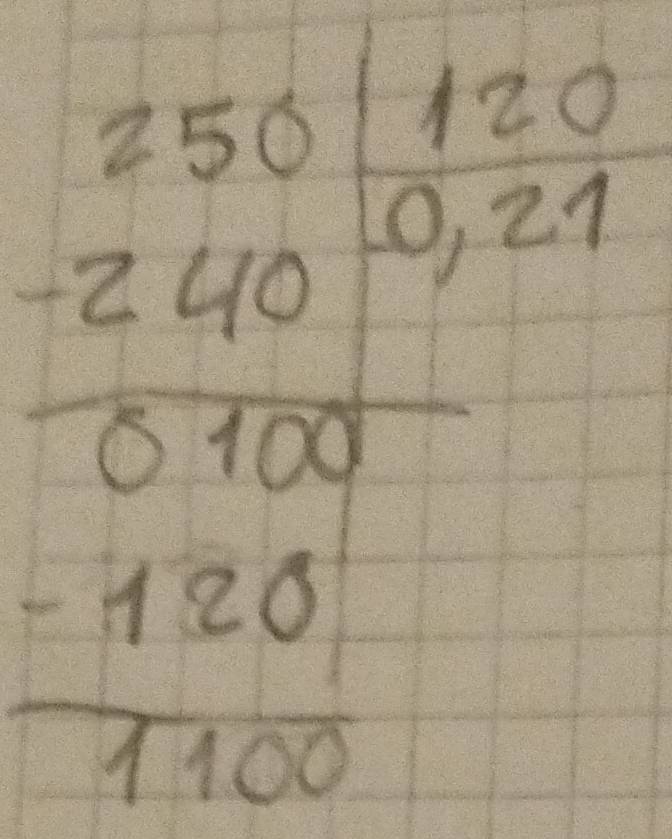 250 | 120
0,21
-240
0100
-120
1100